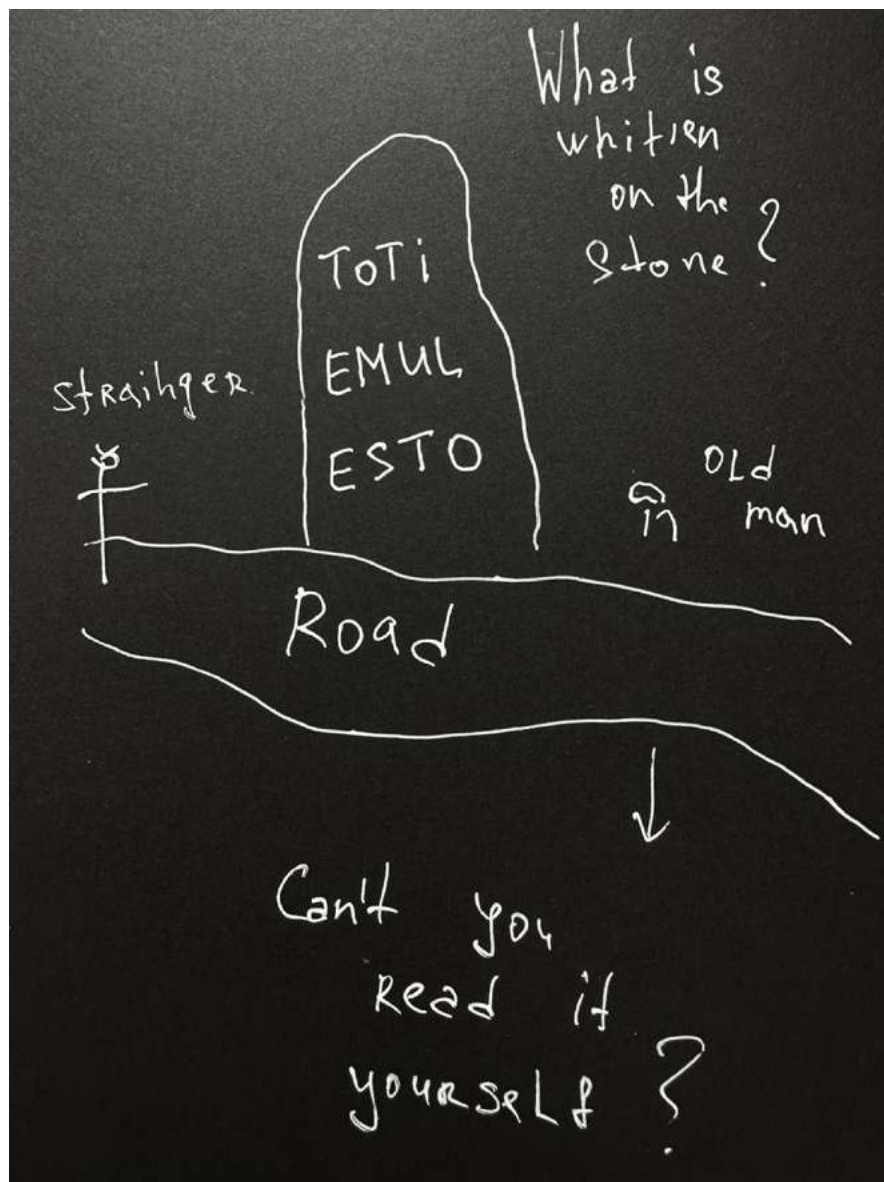 What is
whitten
on the
Stone?
ToTi
EMUL
ESTO
strainger
OLd
man
Road
Can't you
Read it
yourself?